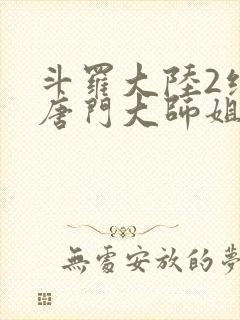 斗羅大陸2絕
唐門大師姐
無處安放的夢